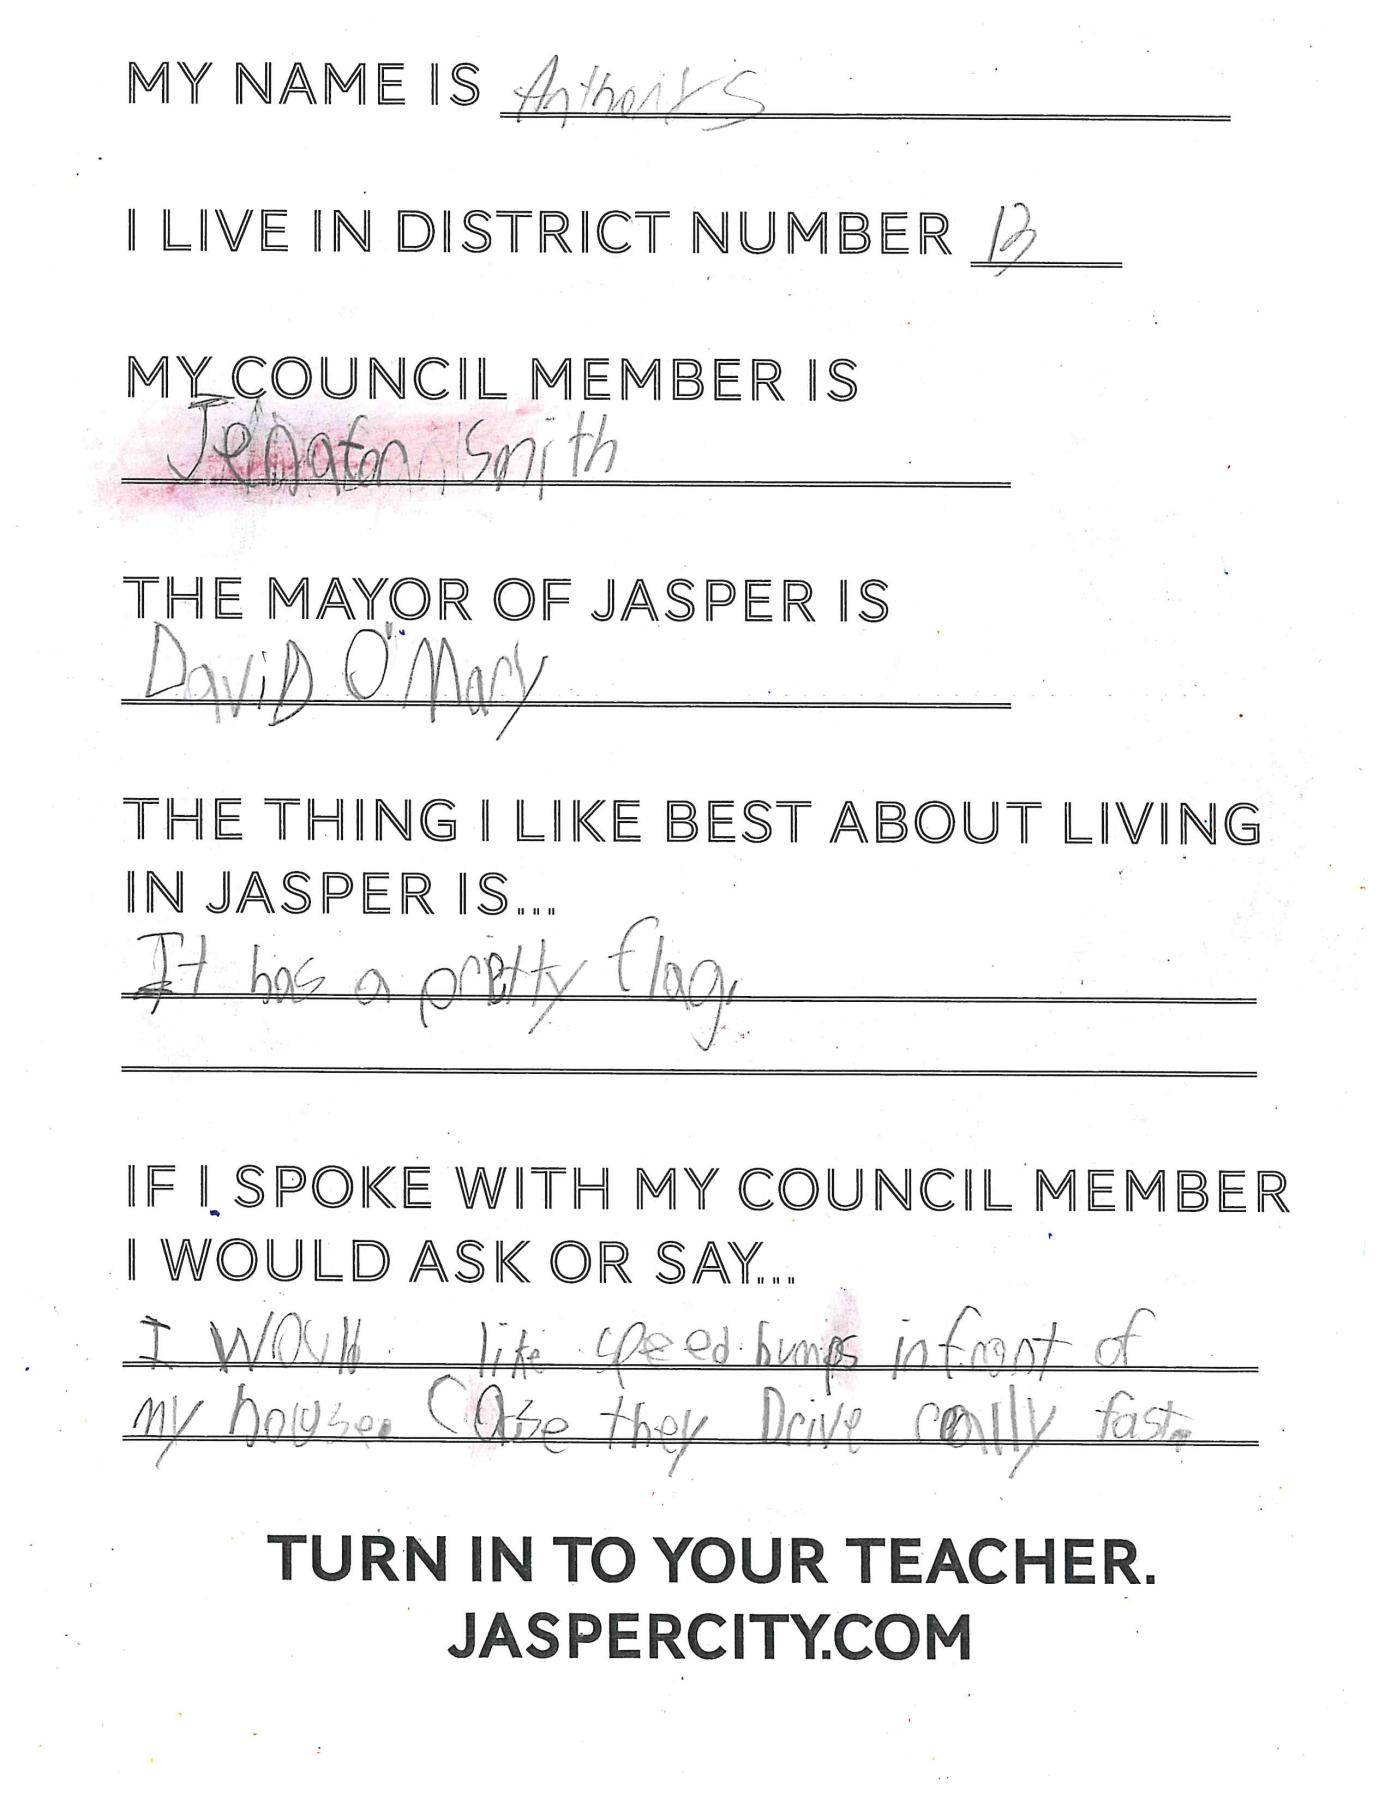 MY NAME IS Anthony S
I LIVE IN DISTRICT NUMBER
MY COUNCIL MEMBER IS
Jenaton Smith
THE MAYOR OF JASPER IS
DaviD O'Mary
THE THING I LIKE BEST ABOUT LIVING
IN JASPER IS...
It has a pretty flag.
IF I SPOKE WITH MY COUNCIL MEMBER
I WOULD ASK OR SAY...
I would like speed bumps infront of
my house. Case they Drive really fast.
TURN IN TO YOUR TEACHER.
JASPERCITY.COM